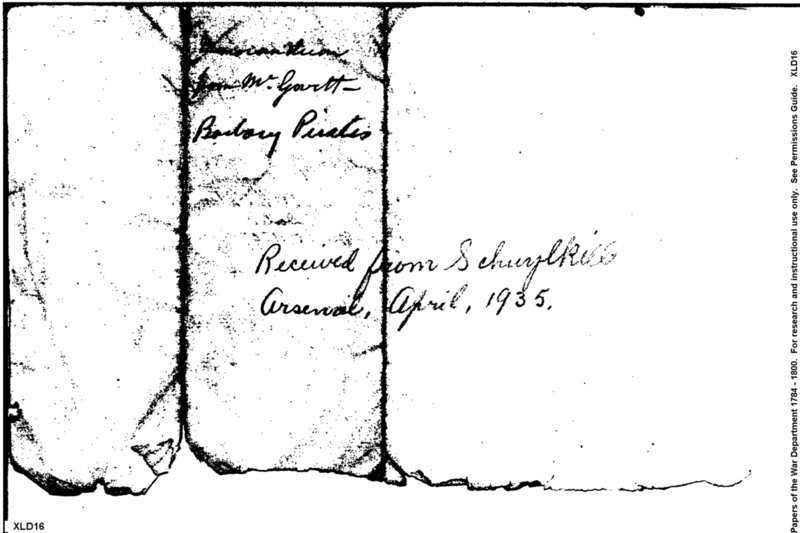 Memorandum
from Mr. Govett—
Barbary Pirates
Received from Schuylkill
Arsenal, April, 1935.
Papers of the War Department 1784 - 1800. For research and instructional use only. See Permissions Guide. XLD16
XLD16